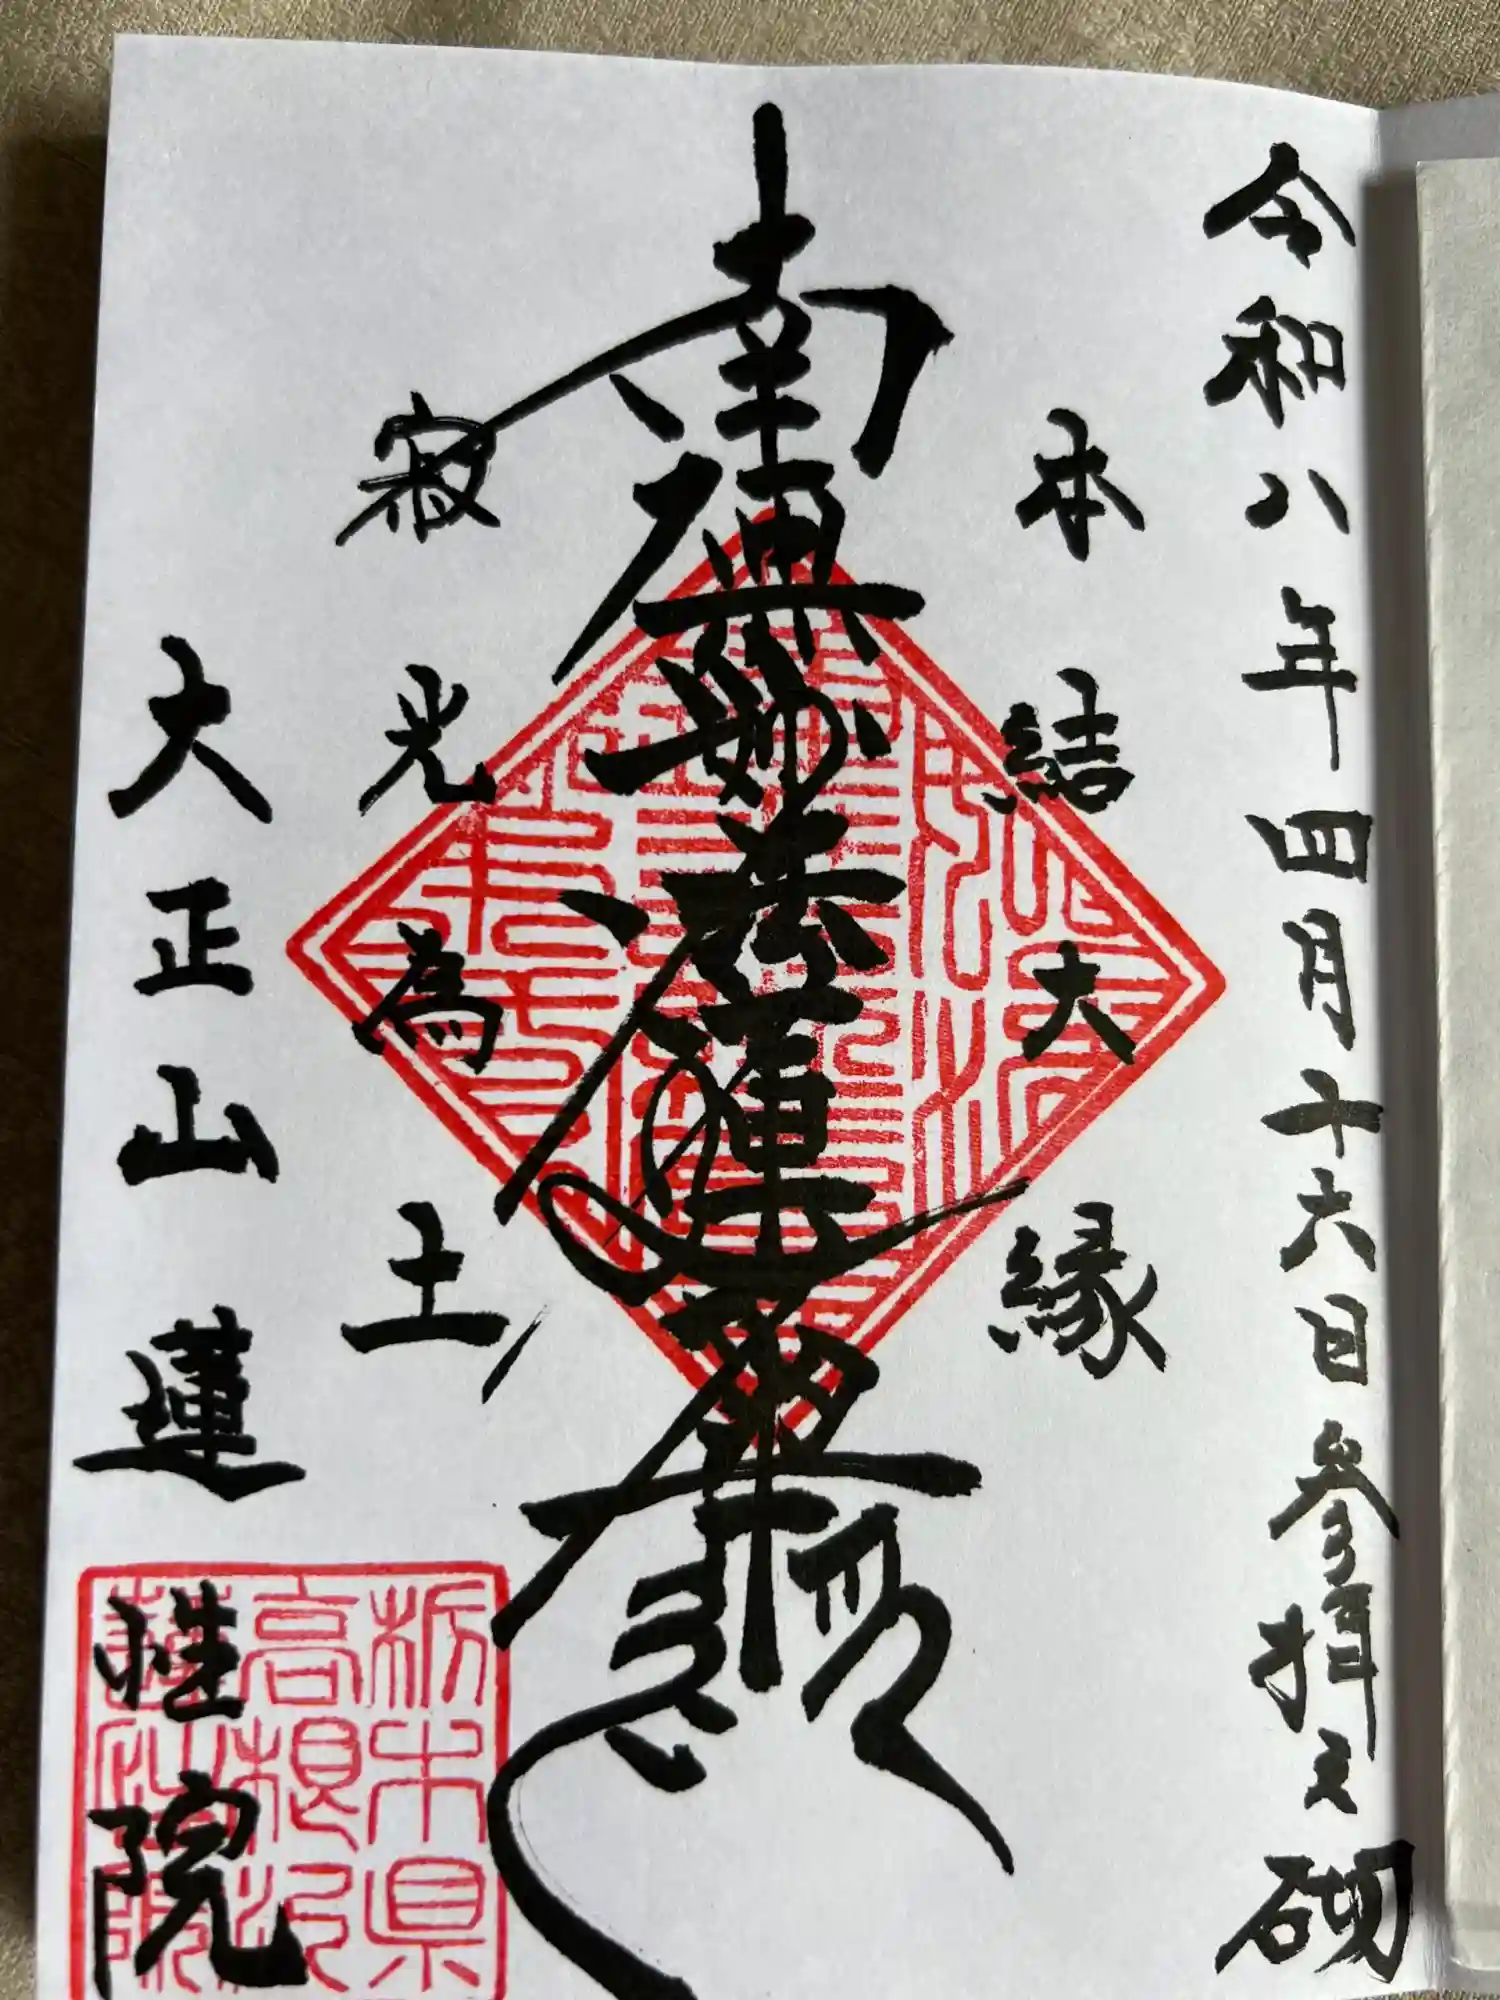 令和八年四月十六日参拝之砌
本結大縁
南無妙法蓮華経
寂光為土
大正山蓮性院
栃木県
高根沢
蓮性院